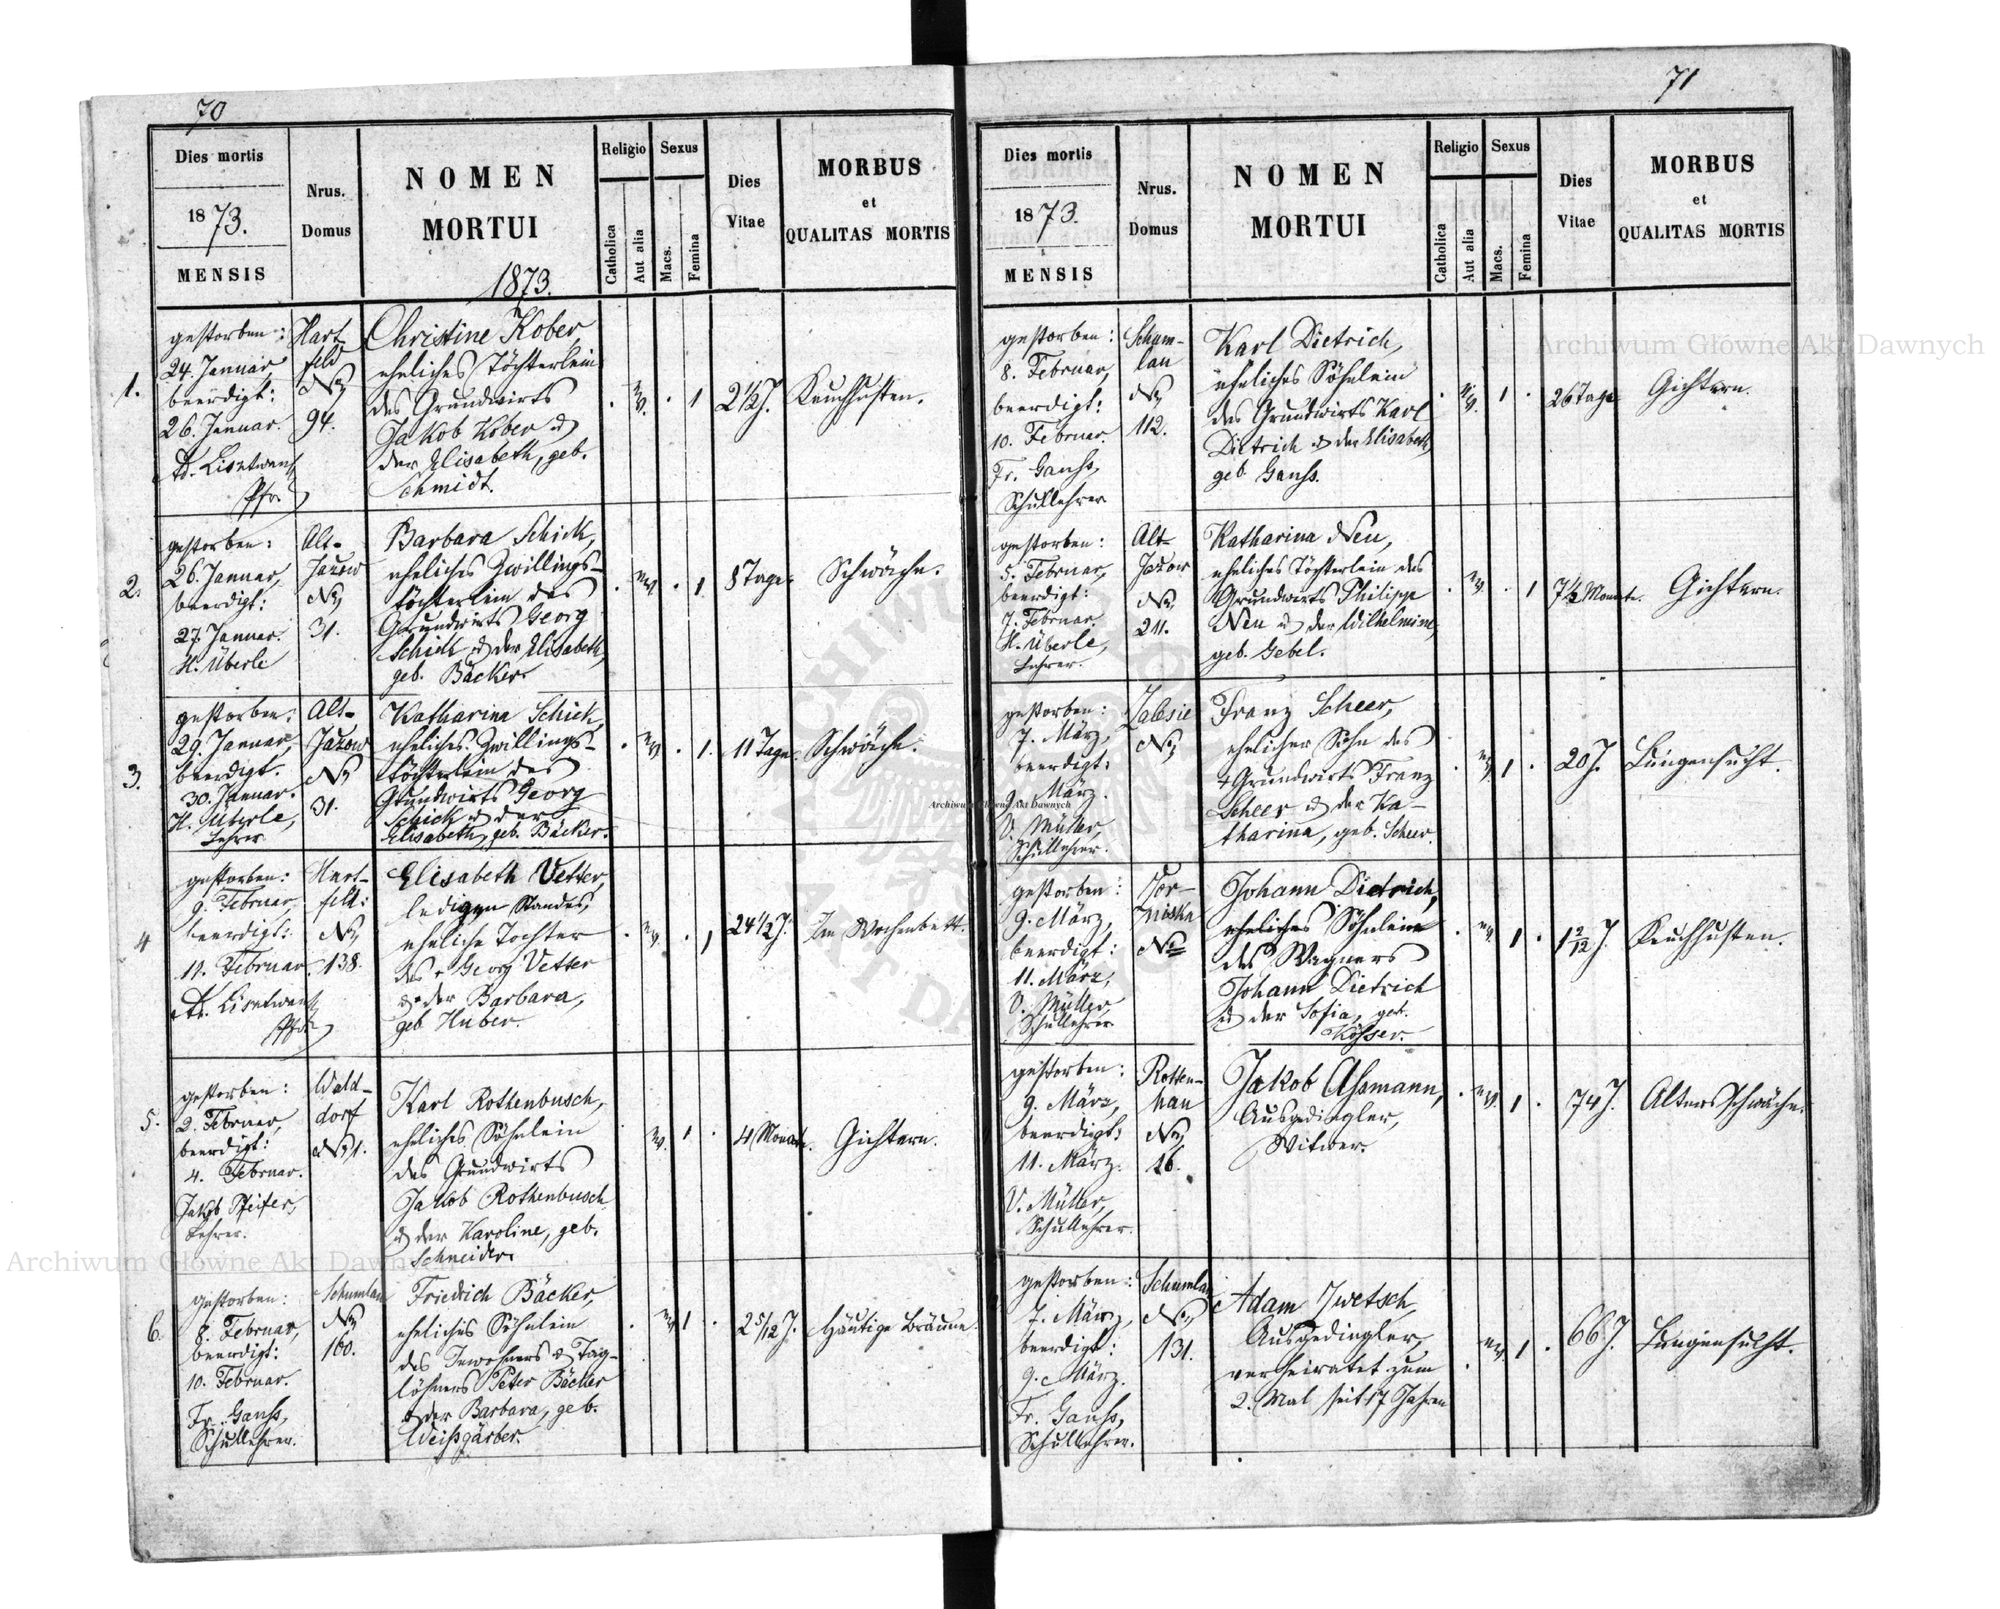 70
Dies mortis
1873.
MENSIS
Nrus.
Domus
NOMEN
MORTUI
1873.
Religio
Catholica
Aut alia
Sexus
Macs.
Femina
Dies
Vitae
MORBUS
et
QUALITAS MORTIS
1.
gestorben:
24. Januar
beerdigt:
26. Januar.
Pfr.
Hart-
feld
No
94.
Christine Kober,
eheliches Töchterlein
des Grundwirts
Jakob Kober u
der Elisabeth, geb.
Schmidt.
1
2 1/2 J.
Keuchhusten.
2.
gestorben:
26. Januar,
beerdigt:
27. Januar.
H. Überle
Alt-
Jazow
No
31.
Barbara Schick,
eheliches Zwillings-
töchterlein des
Grundwirts Georg
Schick u der Elisabeth,
geb. Bäcker.
1
8 Tage.
Schwäche.
3.
gestorben:
29. Januar,
beerdigt.
30. Januar.
H. Überle,
Lehrer
Alt-
Jazow
No
31.
Katharina Schick,
eheliches Zwillings-
töchterlein des
Grundwirts Georg
Schick u der
Elisabeth, geb. Bäcker.
1.
11 Tage.
Schwäche.
4
gestorben:
9. Februar,
beerdigt:
11. Februar.
Pfr.
Hart-
feld:
No
138.
Elisabeth Vetter,
ledigen Standes,
eheliche Tochter
des + Georg Vetter
u der Barbara,
geb Huber.
1
24 1/2 J.
Im Wochenbett.
5.
gestorben:
2. Februar,
beerdigt:
4. Februar.
Jakob Pfeifer,
Lehrer.
Wald-
dorf
No 1.
Karl Rothenbusch,
eheliches Söhnlein
des Grundwirts
Jakob Rothenbusch
u der Karoline, geb.
Schneider.
1
4 Monate.
Gichtern.
6.
gestorben:
8. Februar,
beerdigt:
10. Februar.
Fr. Ganss,
Schullehrer.
Schumlau
No
160.
Friedrich Bäcker,
eheliches Söhnlein
des Inwohners u Tag-
löhners Peter Bäcker
u der Barbara, geb.
Weissgärber.
1
2 5/12 J.
Häutige Bräune.
71
Dies mortis
1873.
MENSIS
Nrus.
Domus
NOMEN
MORTUI
Religio
Catholica
Aut alia
Sexus
Macs.
Femina
Dies
Vitae
MORBUS
et
QUALITAS MORTIS
gestorben:
8. Februar,
beerdigt:
10. Februar.
Fr. Ganss,
Schullehrer
Schum-
lau
No
112.
Karl Dietrich,
eheliches Söhnlein
des Grundwirts Karl
Dietrich u der Elisabeth,
geb Ganss.
1
26 Tage
Gichtern.
gestorben:
5. Februar,
beerdigt:
7. Februar.
H. Überle,
Lehrer.
Alt-
Jazow
No
211.
Katharina Neu,
eheliches Töchterlein des
Grundwirts Philipp
Neu u der Wilhelmine,
geb. Gebel.
1
7 1/2 Monate.
Gichtern.
gestorben:
7. März,
beerdigt:
9. März.
V. Müller,
Schullehrer.
Zalesie
No
Franz Scheer,
ehelicher Sohn des
+ Grundwirts Franz
Scheer u der Ka-
tharina, geb. Scheer.
1
20 J.
Lungensucht.
gestorben:
9. März,
beerdigt:
11. März,
V. Müller,
Schullehrer
No
Johann Dietrich,
eheliches Söhnlein
des Wagners
Johann Dietrich
u der Sofia, geb.
Kosser.
1
1 2/12 J.
Keuchhusten.
gestorben:
9. März,
beerdigt:
11. März.
V. Müller,
Schullehrer.
Rotten-
han
No
26.
Jakob Assmann,
Ausgedingler,
Witwer.
1
74 J.
Altersschwäche.
gestorben:
7. März,
beerdigt:
9. März.
Fr. Ganss,
Schullehrer.
Schumlau
No
131.
Adam Zwetsch,
Ausgedingler,
verheiratet zum
2. Mal seit 17 Jahren
1
66 J.
Lungensucht.
Archiwum Główne Akt Dawnych
Archiwum Główne Akt Dawnych
Archiwum Główne Akt Dawnych